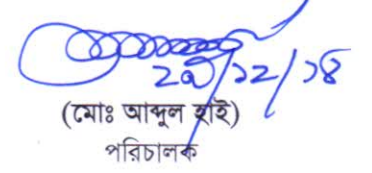 ২৯/১২/১৪
(মোঃ আব্দুল হাই)
পরিচালক